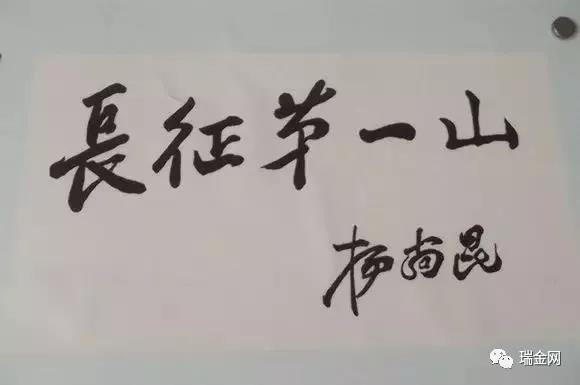 長征第一山
杨尚昆
瑞金网